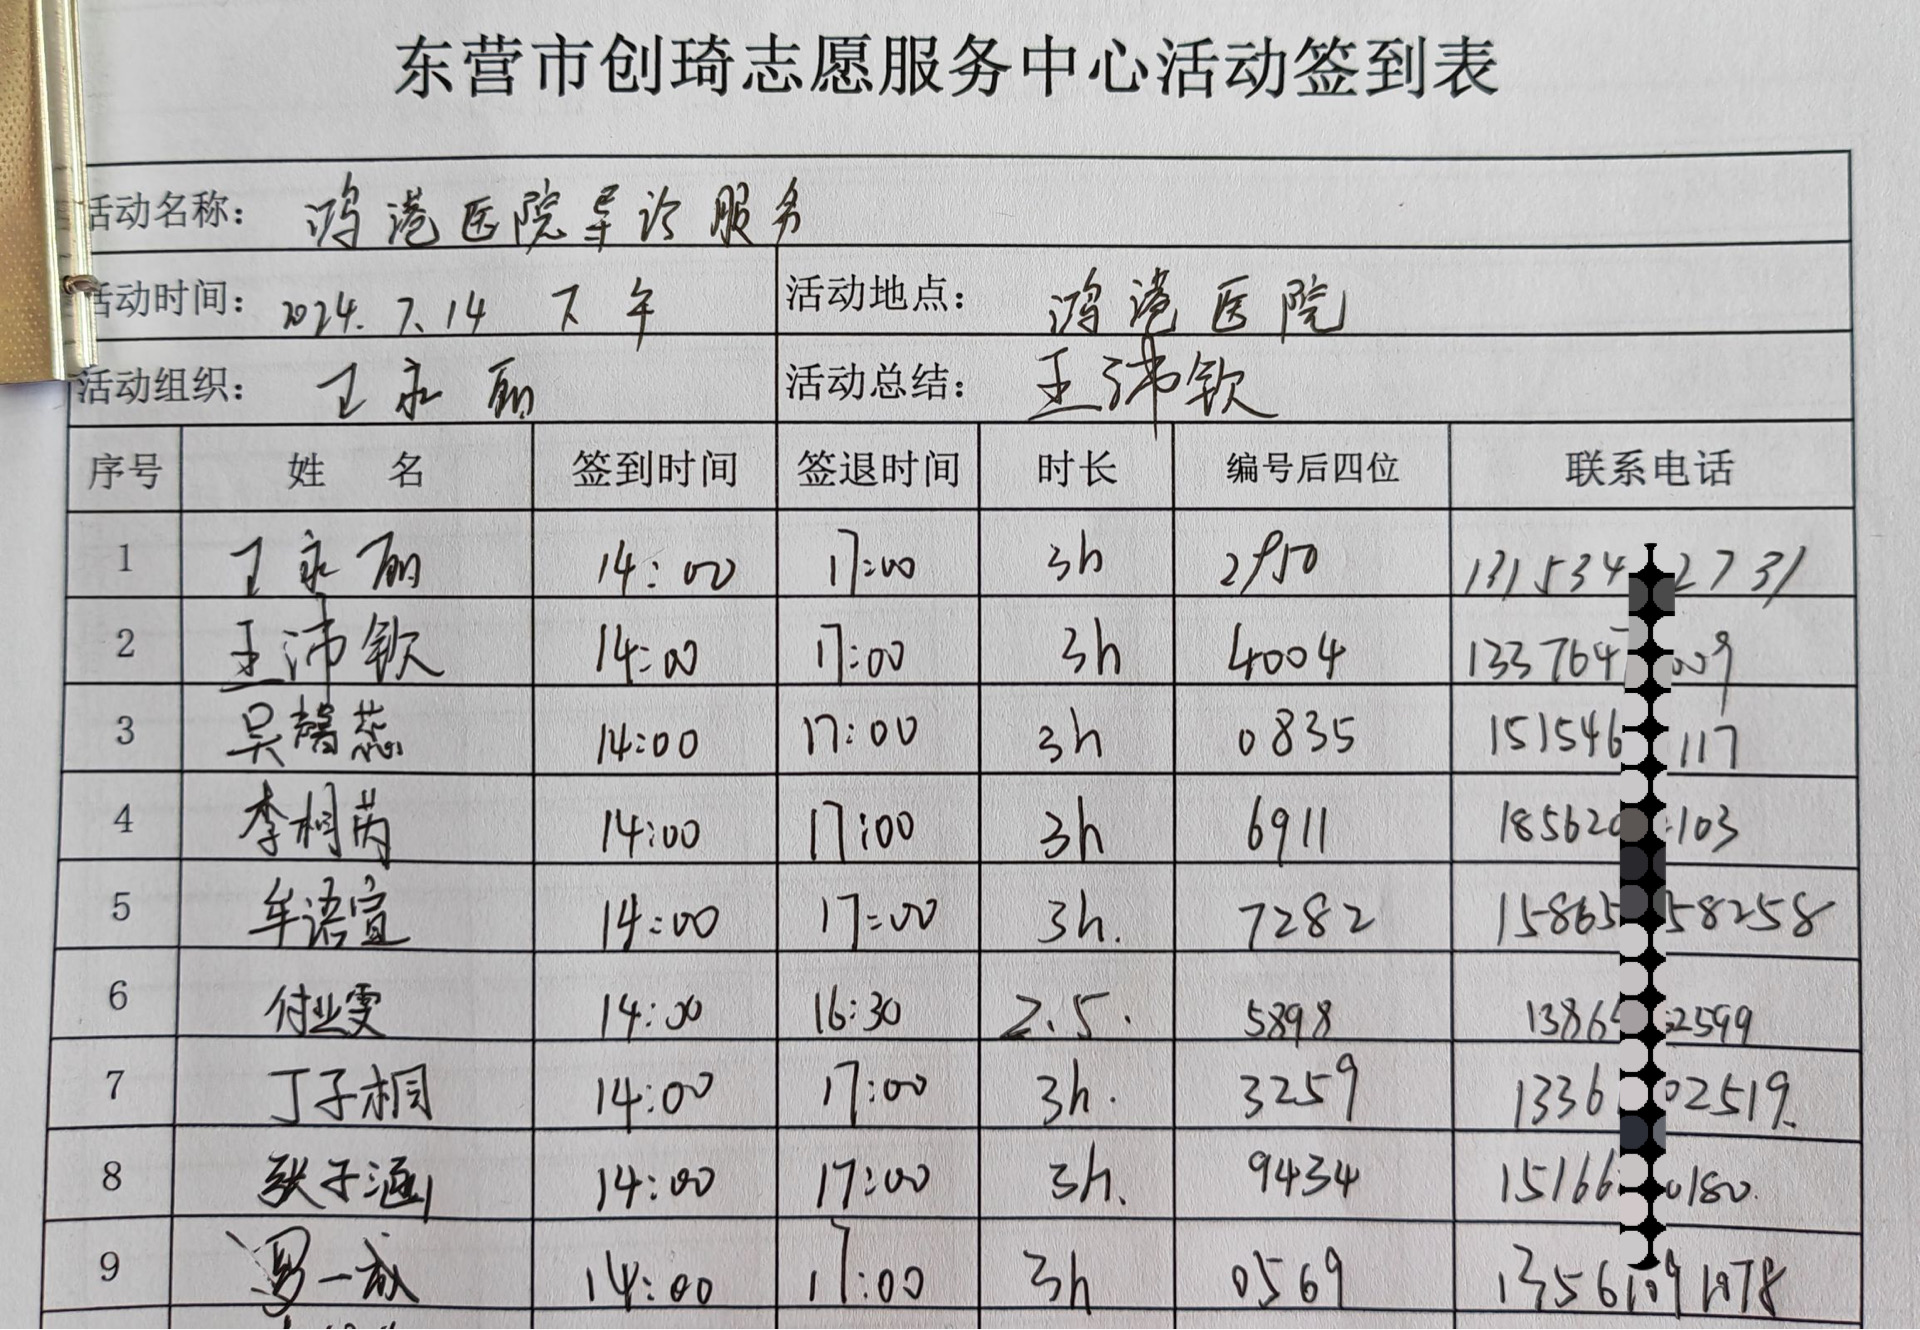 东营市创琦志愿服务中心活动签到表
活动名称： 鸿港医院导诊服务
活动时间： 2024.7.14 下午 活动地点： 鸿港医院
活动组织： 王永丽 活动总结： 王沛钦
序号 姓 名 签到时间 签退时间 时长 编号后四位 联系电话
1 王永丽 14:00 17:00 3h 2950 131534 2731
2 王沛钦 14:00 17:00 3h 4004 133764 009
3 吴馨蕊 14:00 17:00 3h 0835 151546 117
4 李桐芮 14:00 17:00 3h 6911 18562 103
5 牟语宣 14:00 17:00 3h. 7282 15865 58258
6 付业雯 14:00 16:30 2.5. 5898 1386 2599
7 丁子桐 14:00 17:00 3h. 3259 1336 02519.
8 张子涵 14:00 17:00 3h. 9434 15166 0180.
9 一 14:00 17:00 3h 0569 1356 1078